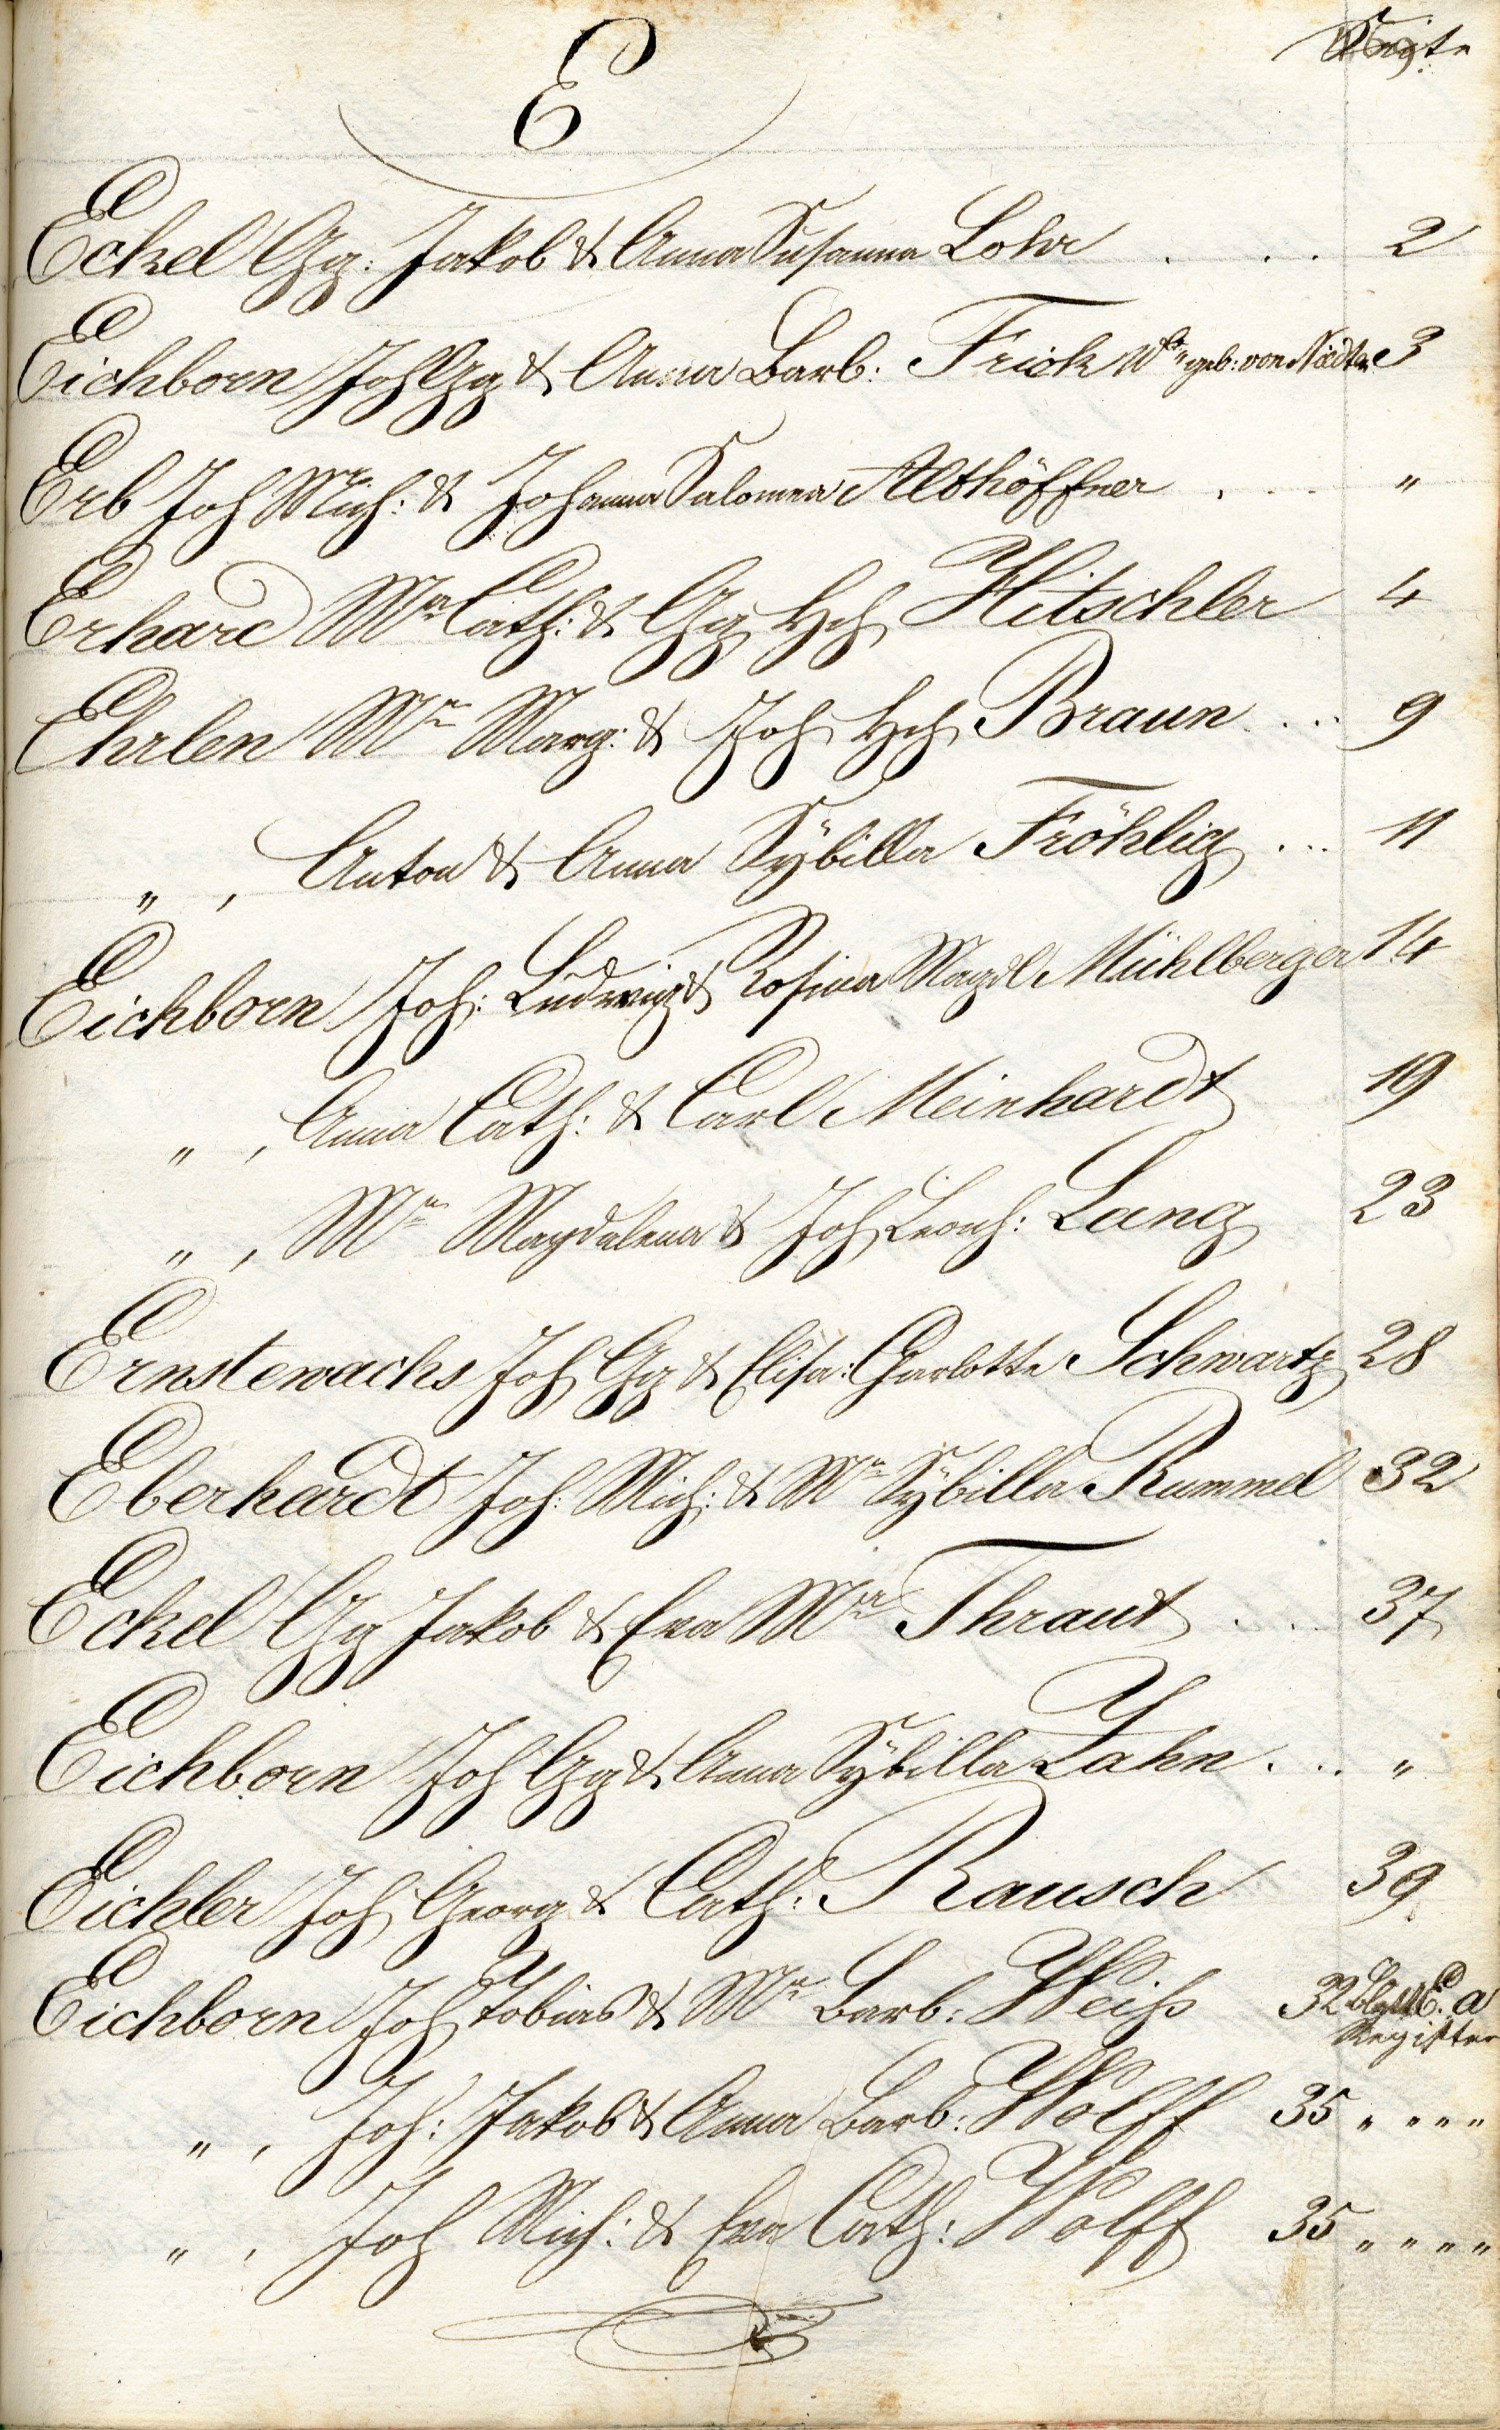 E
Eckel Gg: Jakob & Anna Susanna Lohr . . . . 2
Eichborn Joh Gg & Anna Barb: Frick geb: von 3
Erb Joh Mich: & Johanna Salomea Althöffner . . . "
Erhard Mra Cath: & Gg Hch Hitschler 4
Ehrlen Mra Marg: & Joh Hch Braun ... 9
" , Anton & Anna Sÿbilla Fröhlig ... 11
Eichborn Joh: Ludwig & Rosina Magdl Mühlberger 14
" , Anna Cath: & Carl Meinhardt 19
" , Mra Magdalena & Joh Leonh: Lang 23
Ernstewachs Joh Gg & Elisa: Charlotte Schwartz 28
Eberhardt Joh: Mich: & Mra Sÿbilla Rummel 32
Eckel Gg Jakob & Eva Mra Thraut . . . 37
Eichborn Joh Gg & Anna Sÿbilla Zahn . . . "
Eichler Joh Georg & Cath: Rausch 39
Eichborn Joh Tobias & Mra Barb: Weiß 32 E. a
Register
" , Joh: Jakob & Anna Barb: Wolff 35 " " " "
" , Joh Mich: & Eva Cath: Wolff 35 " " " "